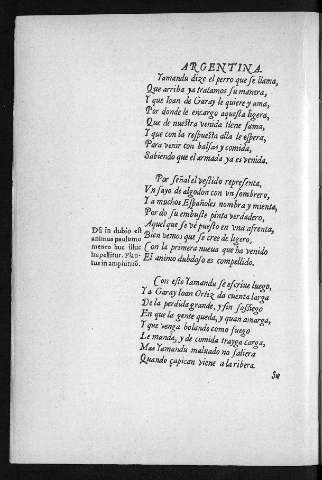 ARGENTINA.
Yamandu dize el perro que se llama,
Que arriba ya tratamos su manera,
Y que Ioan de Garay le quiere y ama,
Por donde le encargo aquesta ligera,
Que de nuestra venida tiene fama,
Y que con la respuesta allà le espera,
Para venir con balsas y comida,
Sabiendo que el armada ya es venida.
Por señal el vestido representa,
Vn sayo de algodon con vn sombrero,
Y a muchos Españoles nombra y mienta,
Por do su embuste pinta verdadero,
Aquel que se vè puesto en vna afrenta,
Bien vemos que se cree de ligero,
Con la primera nueua que ha venido
El animo dubdoso es compellido.
Dũ in dubio est
animus paulo mo
mento huc illuc
impellitur. Plau-
tus in amphitriõ.
Con esto Yamandu se escriue luego,
Ya Garay Ioan Ortiz da cuenta larga
De la perdida grande, y sin sossiego
En que la gente queda, y quan amarga,
Y que venga bolando como fuego
Le manda, y de comida trayga carga,
Mas Yamandu maluado no saliera
Quando çapican viene a la ribera.
Su